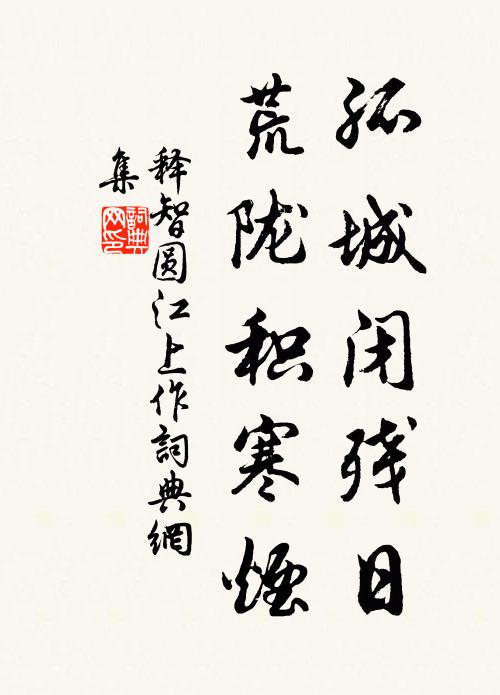 孤城闭残日
荒陇积寒煙
释智圆江上作詞典網
集
詞典
网印